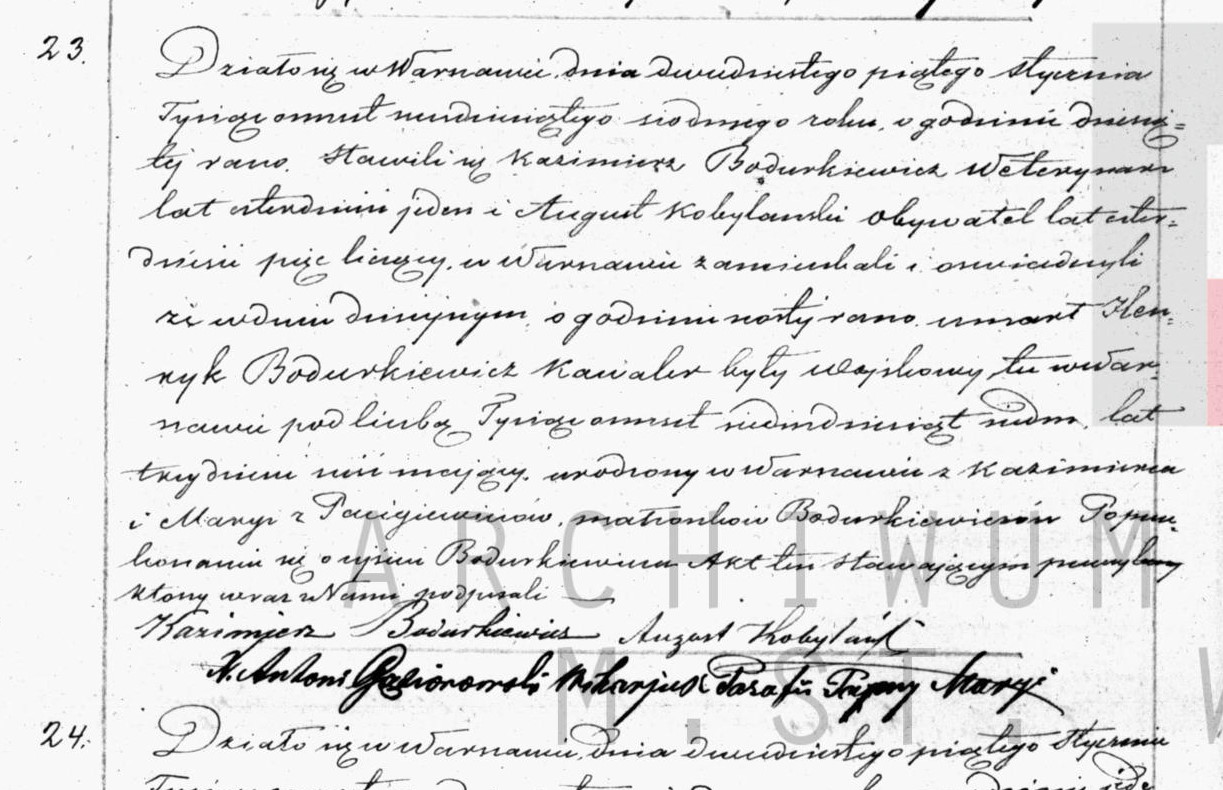 23.
Działo się w Warszawie, dnia dwudziestego piątego Stycznia
Tysiąc ośmset sześćdziesiątego siódmego roku, o godzinie dziesią=
tej rano. Stawili się Kazimierz Bodurkiewicz Weterynarz
lat czterdzieści jeden i August Kobylański Obywatel lat czter=
dzieści pięć liczący, w Warszawie zamieszkali i oświadczyli
że w dniu dzisiejszym, o godzinie szóstej rano, umarł Hen=
ryk Bodurkiewicz Kawaler były wojskowy, tu w War=
szawie pod liczbą Tysiąc ośmset siedmdziesiąt siedm, lat
trzydzieści sześć mający, urodzony w Warszawie z Kazimierza
i Maryi z małżonków Bodurkiewiczów Po prze=
konaniu się o zejściu Bodurkiewicza Akt ten stawającym przeczytany
który wraz z Nami podpisali
Kazimierz Bodurkiewicz August Kobylański
X. Antoni Gąsiorowski Wikarjusz Parafii Panny Maryi
24.
Działo się w Warszawie, dnia dwudziestego piątego Stycznia
ARCHIWUM
M. ST. W